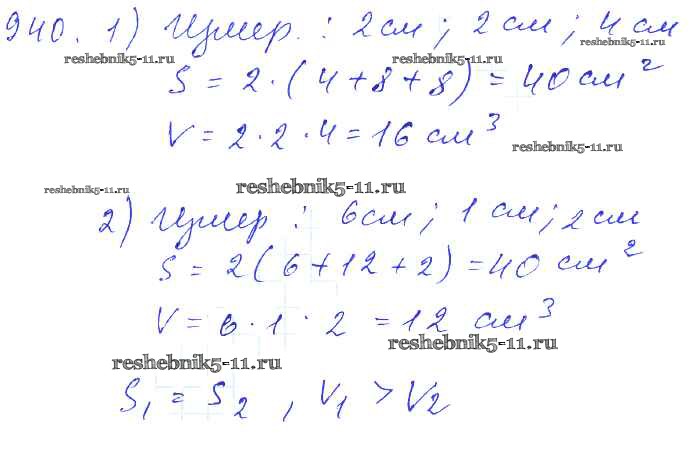 940. 1) Измер. : 2см ; 2см ; 4см
reshebnik5-11.ru reshebnik5-11.ru reshebnik5-11.ru
S = 2·(4+8+8) = 40 см²
V = 2·2·4 = 16 см³
reshebnik5-11.ru
reshebnik5-11.ru reshebnik5-11.ru
2) Измер : 6см ; 1см ; 2см
S = 2(6+12+2) = 40 см²
V = 6·1·2 = 12 см³
reshebnik5-11.ru reshebnik5-11.ru
S₁ = S₂ , V₁ > V₂